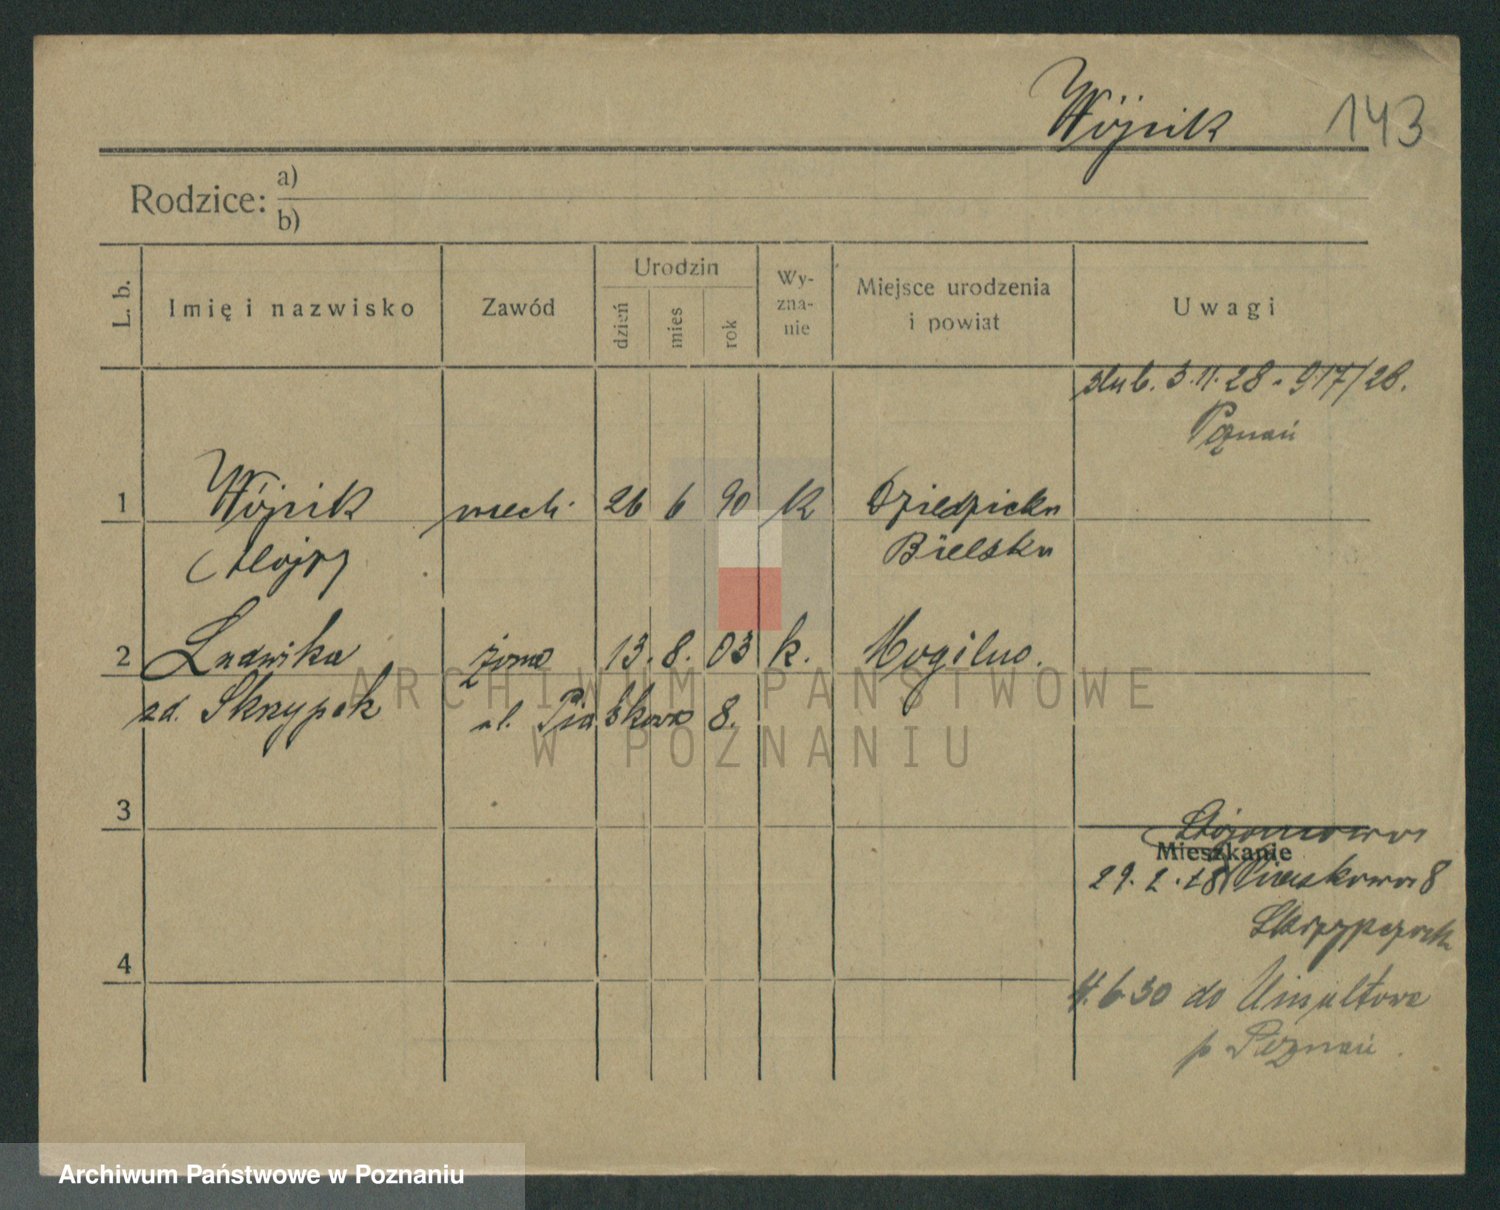 Wójcik 143
Rodzice: a)
b)
L. b. Imię i nazwisko Zawód Urodzin dzień mies rok Wy-zna-nie Miejsce urodzenia i powiat Uwagi
ślub. 3.11.28 - 917/28.
Poznań
1 Wójcik mech. 26 6 90 k Dziedzicka
Alojzy Bielska
2 Ludwika żona 13. 8. 03 k. Mogilno.
zd. Skrzypek ul. Piaskowa 8.
ARCHIWUM PAŃSTWOWE
W POZNANIU
3
Mieszkanie
29. 2. 28 Piaskowa 8
4
4.6.30 do Umultowa
p Poznań.
Archiwum Państwowe w Poznaniu